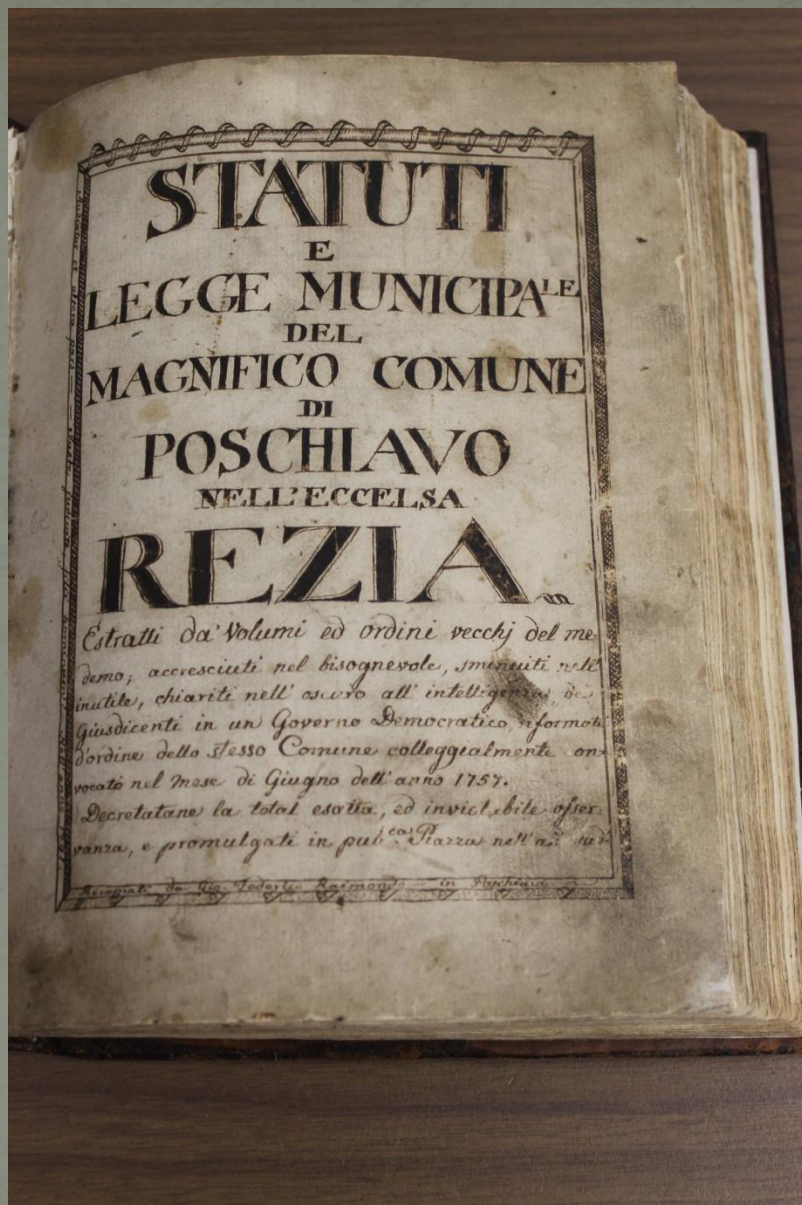 STATUTI
E
LEGGE MUNICIPALE
DEL
MAGNIFICO COMUNE
DI
POSCHIAVO
NELL'ECCELSA
REZIA
Estratti da' Volumi ed ordini vecchj del me
demo; accresciuti nel bisognevole, sminuiti nell'
inutile, chiariti nell' oscuro all' intelligenza de
Giusdicenti in un Governo Democratico, riformati
d'ordine dello stesso Comune colleggialmente con
vocato nel Mese di Giugno dell' anno 1757.
Decretatane la total esatta, ed invictibile osser
vanza, e promulgati in pub.ca Piazza nell'
Raimondo in